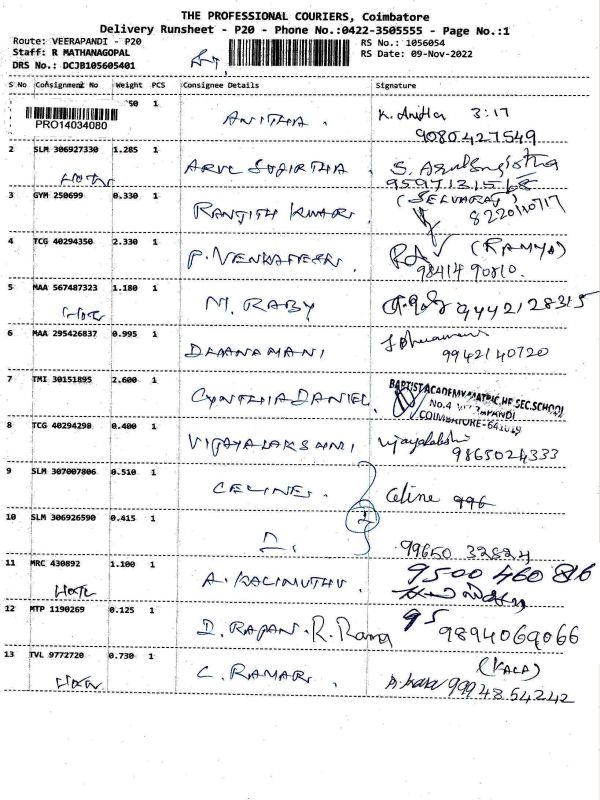 THE PROFESSIONAL COURIERS, Coimbatore
Delivery Runsheet - P20 - Phone No.:0422-3505555 - Page No.:1
Route: VEERAPANDI - P20
RS No.: 1056054
Staff: R MATHANAGOPAL
RS Date: 09-Nov-2022
DRS No.: DCJB105605401
S No Consignment No Weight PCS Consignee Details Signature
1 50 1 ANITHA. K. Anitha 3:17
PRO14034080
9080427549
2 SLM 306927330 1.285 1 ARUL SUJIRTHA
3 GYM 250699 0.330 1 RANJITH KUMAR. (SELVARAJ)
4 TCG 40294350 2.330 1 P. VENKATESH. (RAMYA)
98414 90810.
5 MAA 567487323 1.180 1 M. RABY 9442128315
6 MAA 295426837 0.995 1 DHANAMANI
9942140720
7 TMI 30151895 2.600 1 CYNTHIA DANIEL. BAPTIST ACADEMY MATRIC.HR.SEC.SCHOOL
No.4 VEERAPANDI
COIMBATORE-641019
8 TCG 40294298 0.400 1 VIJAYALAKSHMI Vijayalakshmi
9865024333
9 SLM 307007806 0.510 1 CELINE. Celine 996
10 SLM 306926590 0.415 1
99650 32824
11 MRC 430892 1.100 1 A. KALIMUTHU 9500 460 816
12 MTP 1190269 0.125 1 D. RAJAN. R. Rama 95
9894069066
13 TVL 9772720 0.730 1 C. RAMAR. (KALA)
99948 54242